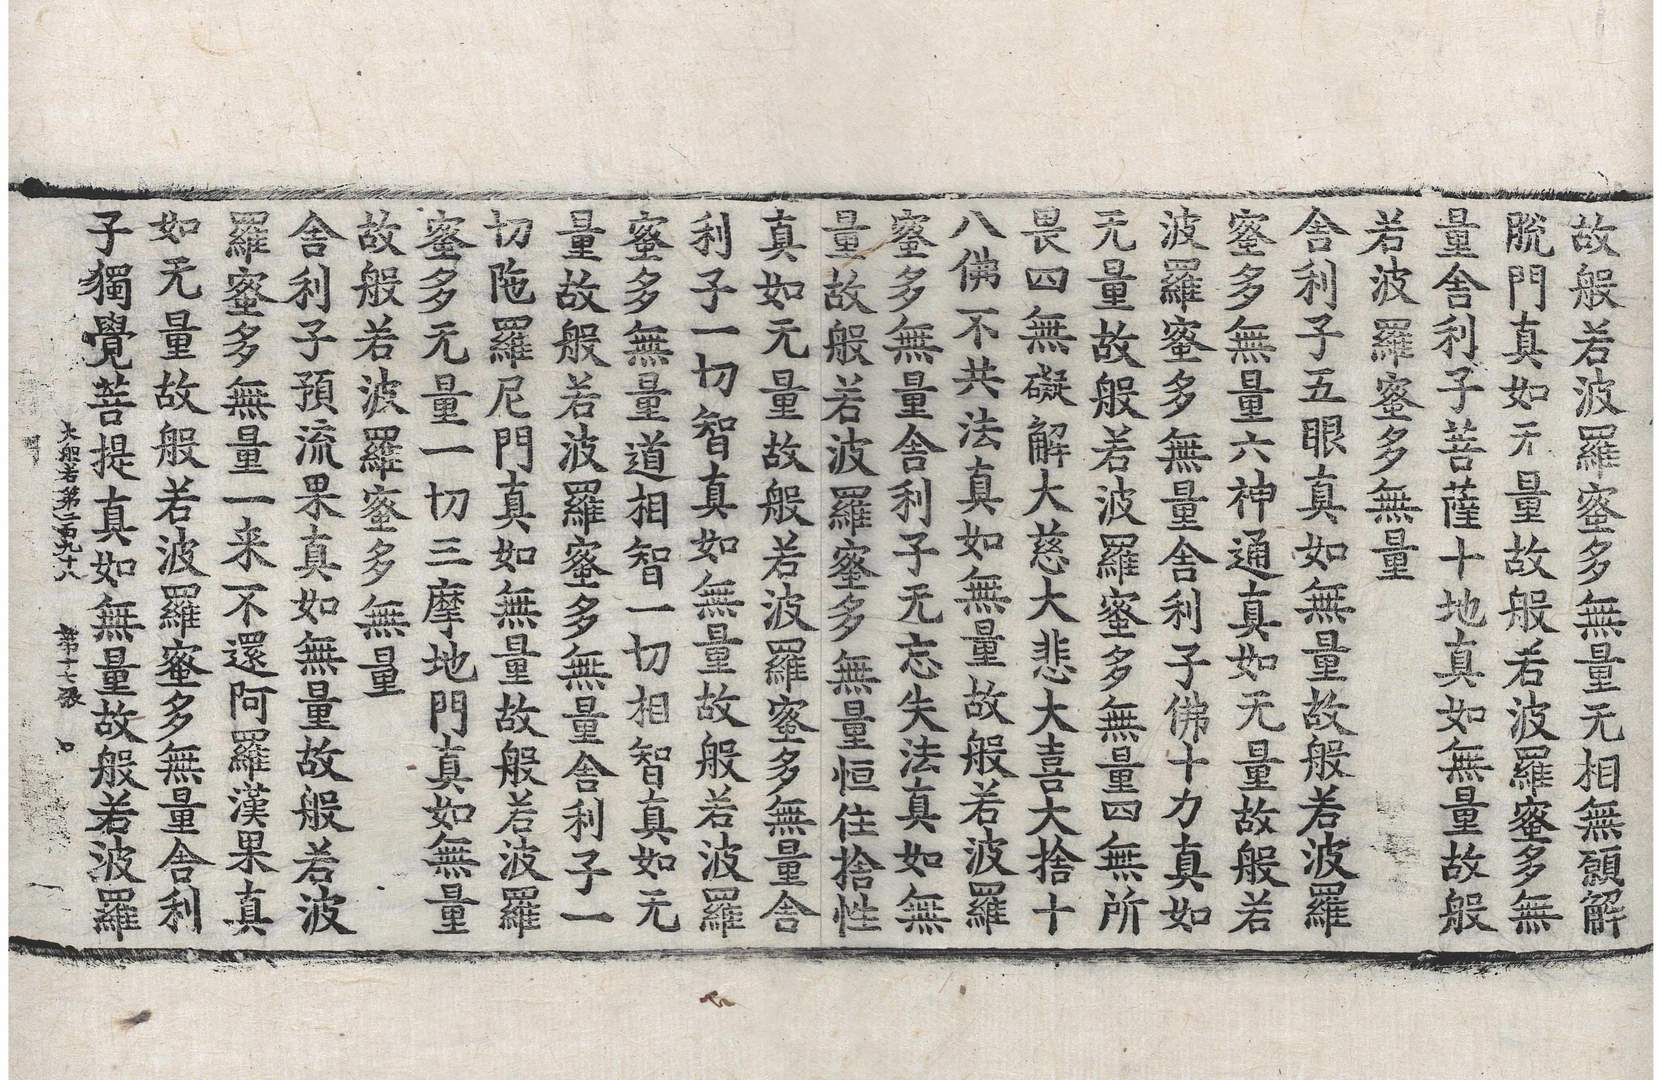 故般若波羅蜜多無量无相無願解
脫門真如无量故般若波羅蜜多無
量舍利子菩薩十地真如無量故般
若波羅蜜多無量
舍利子五眼真如無量故般若波羅
蜜多無量六神通真如无量故般若
波羅蜜多無量舍利子佛十力真如
无量故般若波羅蜜多無量四無所
畏四無礙解大慈大悲大喜大捨十
八佛不共法真如無量故般若波羅
蜜多無量舍利子无忘失法真如無
量故般若波羅蜜多無量恒住捨性
真如无量故般若波羅蜜多無量舍
利子一切智真如無量故般若波羅
蜜多無量道相智一切相智真如无
量故般若波羅蜜多無量舍利子一
切陁羅尼門真如無量故般若波羅
蜜多无量一切三摩地門真如無量
故般若波羅蜜多無量
舍利子預流果真如無量故般若波
羅蜜多無量一来不還阿羅漢果真
如无量故般若波羅蜜多無量舍利
子獨覺菩提真如無量故般若波羅
大般若第二百九十八 第十七張